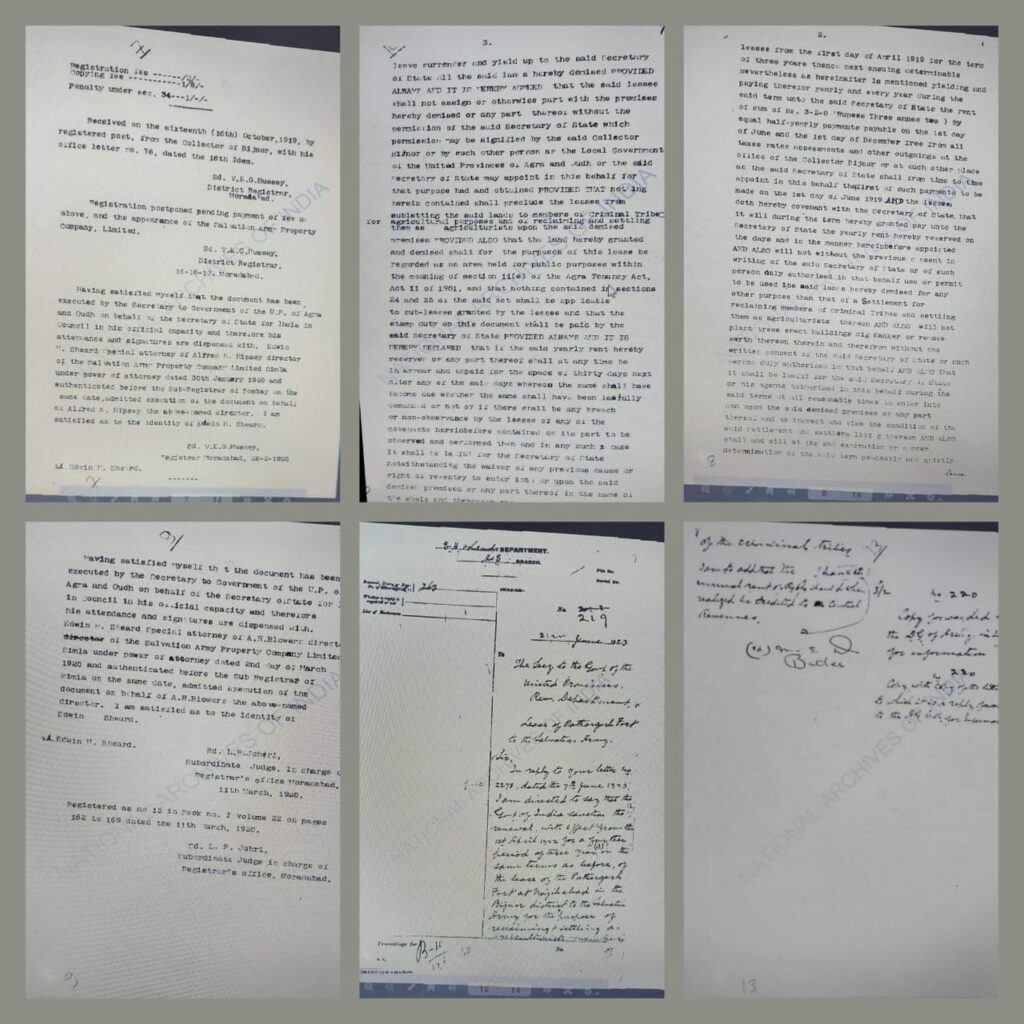 Registration fee ------/2/-
Copying fee ------
Penalty under sec. 34---1/-/-
Received on the sixteenth (16th) October,1919, by
registered post, from the Collector of Bijnor, with his
office letter no. 76, dated the 16th Idem.
Sd. V.E.G.Hussey,
District Registrar,
Moradabad.
Registration postponed pending payment of fee
above, and the appearance of the Salvation Army Property
Company, Limited.
Sd. V.E.G.Hussey,
District Registrar,
16-10-19, Moradabad.
Having satisfied myself that the document has been
executed by the Secretary to Government of the U.P. of Agra
and Oudh on behalf of the Secretary of State for India in
Council in his official capacity and therefore his
attendance and signatures are dispensed with. Edwin
H. Sheard special attorney of Alfred S. Hipsey director
of the Salvation Army Property Company Limited Simla
under power of attorney dated 30th January 1920 and
authenticated before the Sub-Registrar of Bombay on the
same date, admitted execution of the document on behalf
of Alfred S. Hipsey the above-named director. I am
satisfied as to the identity of Edwin H. Sheard.
Sd. V.E.G.Hussey,
Registrar Moradabad, 26-2-1920
Sd. Edwin H. Sheard.
3.
leave surrender and yield up to the said Secretary
of State all the said lan s hereby demised PROVIDED
ALWAYS AND IT IS HEREBY AGREED that the said lessee
shall not assign or otherwise part with the premises
hereby demised or any part thereof without the
permission of the said Secretary of State which
permission may be signified by the said Collector
Bijnor or by such other person as the Local Government
of the United Provinces of Agra and Oudh or the said
Secretary of State may appoint in this behalf for
that purpose had and obtained PROVIDED THAT nothing
herein contained shall preclude the lessee from
subletting the said lands to members of Criminal Tribe
for agricultural purposes and of reclaiming and settling
them as agriculturists upon the said demised
premises PROVIDED ALSO that the land hereby granted
and demised shall for the purposes of this lease be
regarded as an area held for public purposes within
the meaning of section 11(e) of the Agra Tenancy Act,
Act 11 of 1901, and that nothing contained in sections
24 and 25 of the said Act shall be app icable
to sub-leases granted by the lessee and that the
stamp duty on this document shall be paid by the
said Secretary of State PROVIDED ALWAYS AND IT IS
HEREBY DECLARED that if the said yearly rent hereby
reserved or any part thereof shall at any time be
in arrear and unpaid for the space of thirty days next
after any of the said days whereon the same shall have
become due whether the same shall have been lawfully
demanded or not or if there shall be any breach
or non-observance by the lessee of any of the
covenants hereinbefore contained on its part to be
observed and performed then and in any such a case
it shall be lawful for the Secretary of State
notwithstanding the waiver of any previous cause or
right of re-entry to enter into or upon the said
demised premises or any part thereof in the name of
the whole and thereupon the
2.
leases from the first day of April 1919 for the term
of three years thence next ensuing determinable
nevertheless as hereinafter is mentioned yielding and
paying therefor yearly and every year during the
said term unto the said Secretary of State the rent
of sum of Rs. 3-2-0 (Rupees Three annas two) by
equal half-yearly payments payable on the 1st day
of June and the 1st day of December free from all
taxes rates assessments and other outgoings at the
office of the Collector Bijnor or at such other place
as the said Secretary of State shall from time to time
appoint in this behalf thefirst of such payments to be
made on the 1st day of June 1919 AND the lessee
doth hereby covenant with the Secretary of State that
it will during the term hereby granted pay unto the
Secretary of State the yearly rent hereby reserved on
the days and in the manner hereinbefore appointed
AND ALSO will not without the previous consent in
writing of the said Secretary of State or of such
person duly authorised in that behalf use or permit
to be used the said lands hereby demised for any
other purpose than that of a Settlement for
reclaiming members of Criminal Tribes and settling
them as agriculturists thereon AND ALSO will not
plant trees erect buildings dig or remove
earth thereon therein and therefrom without the
written consent of the said Secretary of State or such
person duly authorised in that behalf AND ALSO that
it shall be lawful for the said Secretary of State
or his agents authorised in this behalf during the
said term at all reasonable times to enter into
and upon the said demised premises or any part
thereof and to inspect and view the condition of the
said Settlement and settlers living thereon AND ALSO
shall and will at the end expiration or sooner
determination of the said term peaceably and quietly
8
leave
Having satisfied myself th t the document has been
executed by the Secretary to Government of the U.P. o
Agra and Oudh on behalf of the Secretary ofState for I
in Council in his official capacity and therefore
his attendance and signatures are dispensed with.
Edwin H. Sheard Special attorney of A.R.Blowers direct
director of the Salvation Army Property Company Limited
Simla under power of attorney dated 2nd day of March
1920 and authenticated before the Sub Registrar of
Simla on the same date, admitted execution of the
document on behalf of A.R.Blowers the above-named
director. I am satisfied as to the identity of
Edwin Sheard.
Sd. Edwin H. Sheard.
Sd. L.P.Johri,
Subordinate Judge, in charge o
Registrar's office Moradabad,
11th March, 1920.
Registered as no 15 in Book no. 1 volume 22 on pages
162 to 169 dated the 11th March, 1920.
Sd. L. P. Johri,
Subordinate Judge in charge of
Registrar's office, Moradabad.
9
E. H. & Lands DEPARTMENT.
BRANCH.
File No.
Serial No.
263
No 219
21st June 1923
To
The Secy to the Govt of the
United Provinces,
Rev. Department.
Lease of Pathargarh Fort
to the Salvation Army.
Sir,
In reply to your letter no
2278, dated the 7th June 1923,
I am directed to say that the
Govt of India sanction the
renewal, with effect from the
1st April 1922 for a further
period of three years on the
same terms as before, of
the lease of the Pathargarh
Fort at Najibabad in the
Bijnor district to the Salvation
Army for the purpose of
reclaiming & settling as
agriculturists members
of
Proceedings for
12
No
of the criminal tribes
I am to add that the
annual rent of Rs 3/2
realized be credited to Central
Revenues.
(Sd) M. S. D
Butler
No 220
Copy forwarded
the D.G. of Arch in In
for information
220
Copy with copy of the letter
to which it is a reply forward
to the for informa
13
NATIONAL ARCHIVES OF INDIA